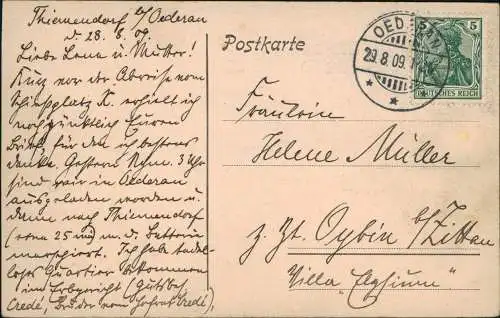 Thiemendorf b/Oederan
d. 28.8.09.
Liebe Lena u. Mutter!
Kurz vor der Abreise vom
Schießplatz Z. erhielt ich
noch pünktlich Euren
Brief, für den ich bestens
danke. Gestern Nchm. 3 Uhr
sind wir in Oederan
ausgeladen worden u.
dann nach Thiemendorf
m. d. Batterie
marschiert. Ich habe tadel-
loses Quartier bekommen
im Erbgericht (Gutsbes.
Credé, Bruder vom Hofrat Credé),
Postkarte
OEDERAN
29.8.09.
5 5
DEUTSCHES REICH
Fräulein
Helene Müller
z. Zt. Oybin b/Zittau
Villa „Elysium"